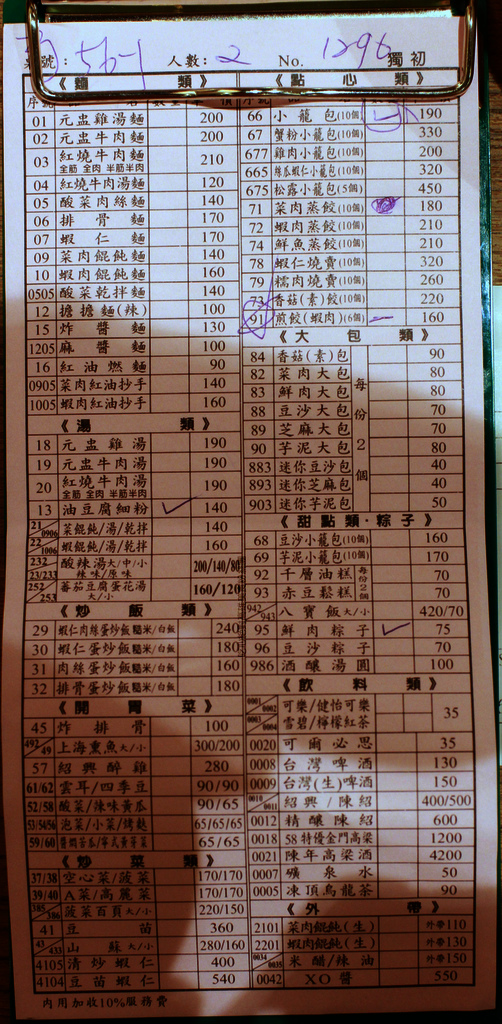 桌號: 56-1 人數: 2 No. 1296 獨初
《 麵 類 》
01 元盅雞湯麵 200
02 元盅牛肉麵 200
03 紅燒牛肉麵 全筋 全肉 半筋半肉 210
04 紅燒牛肉湯麵 120
05 酸菜肉絲麵 140
06 排骨麵 170
07 蝦仁麵 170
09 菜肉餛飩麵 140
10 蝦肉餛飩麵 160
0505 酸菜乾拌麵 140
12 擔擔麵(辣) 100
15 炸醬麵 130
1205 麻醬麵 100
16 紅油燃麵 90
0905 菜肉紅油抄手 140
1005 蝦肉紅油抄手 160
《 湯 類 》
18 元盅雞湯 190
19 元盅牛肉湯 190
20 紅燒牛肉湯 全筋 全肉 半筋半肉 190
13 油豆腐細粉 140
21/0906 菜餛飩/湯/乾拌 140
22/1006 蝦餛飩/湯/乾拌 160
232 23/233 酸辣湯大/中/小 辣味/原味 200/140/80
252/253 蕃茄豆腐蛋花湯 大/小 160/120
《 炒 飯 類 》
29 蝦仁肉絲蛋炒飯糙米/白飯 240
30 蝦仁蛋炒飯糙米/白飯 180
31 肉絲蛋炒飯糙米/白飯 160
32 排骨蛋炒飯糙米/白飯 180
《 開 胃 菜 》
45 炸排骨 100
492/49 上海熏魚大/小 300/200
57 紹興醉雞 280
61/62 雲耳/四季豆 90/90
52/58 酸菜/辣味黃瓜 90/65
53/54/56 泡菜/小菜/烤麩 65/65/65
59/60 65/65
《 炒 菜 類 》
37/38 空心菜/菠菜 170/170
39/40 A菜/高麗菜 170/170
385/386 菠菜百頁大/小 220/150
41 豆苗 360
43/433 山蘇大/小 280/160
4105 清炒蝦仁 400
4104 豆苗蝦仁 540
內用加收10%服務費
《 點 心 類 》
66 小籠包(10個) 190
67 蟹粉小籠包(10個) 330
677 雞肉小籠包(10個) 200
665 絲瓜蝦仁小籠包(10個) 320
675 松露小籠包(5個) 450
71 菜肉蒸餃(10個) 180
72 蝦肉蒸餃(10個) 210
74 鮮魚蒸餃(10個) 210
78 蝦仁燒賣(10個) 320
79 糯肉燒賣(10個) 260
73 香菇(素)餃(10個) 220
91 煎餃(蝦肉)(6個) 160
《 大 包 類 》
每份2個
84 香菇(素)包 90
82 菜肉大包 80
83 鮮肉大包 80
88 豆沙大包 70
89 芝麻大包 70
90 芋泥大包 80
883 迷你豆沙包 40
893 迷你芝麻包 40
903 迷你芋泥包 50
《 甜點類 · 粽子 》
68 豆沙小籠包(10個) 160
69 芋泥小籠包(10個) 170
92 千層油糕 每份2個 70
93 赤豆鬆糕 70
942/943 八寶飯大/小 420/70
95 鮮肉粽子 75
96 豆沙粽子 70
986 酒釀湯圓 100
《 飲 料 類 》
0001/0002 可樂/健怡可樂
0003/0004 雪碧/檸檬紅茶 35
0020 可爾必思 35
0008 台灣啤酒 130
0009 台灣(生)啤酒 150
0010/0011 紹興/陳紹 400/500
0012 精釀陳紹 600
0018 58特優金門高梁 1200
0021 陳年高梁酒 4200
0007 礦泉水 50
0005 凍頂烏龍茶 90
《 外 帶 》
2101 菜肉餛飩(生) 外帶110
2201 蝦肉餛飩(生) 外帶130
0034/0035 米醋/辣油 外帶150
0042 XO醬 550